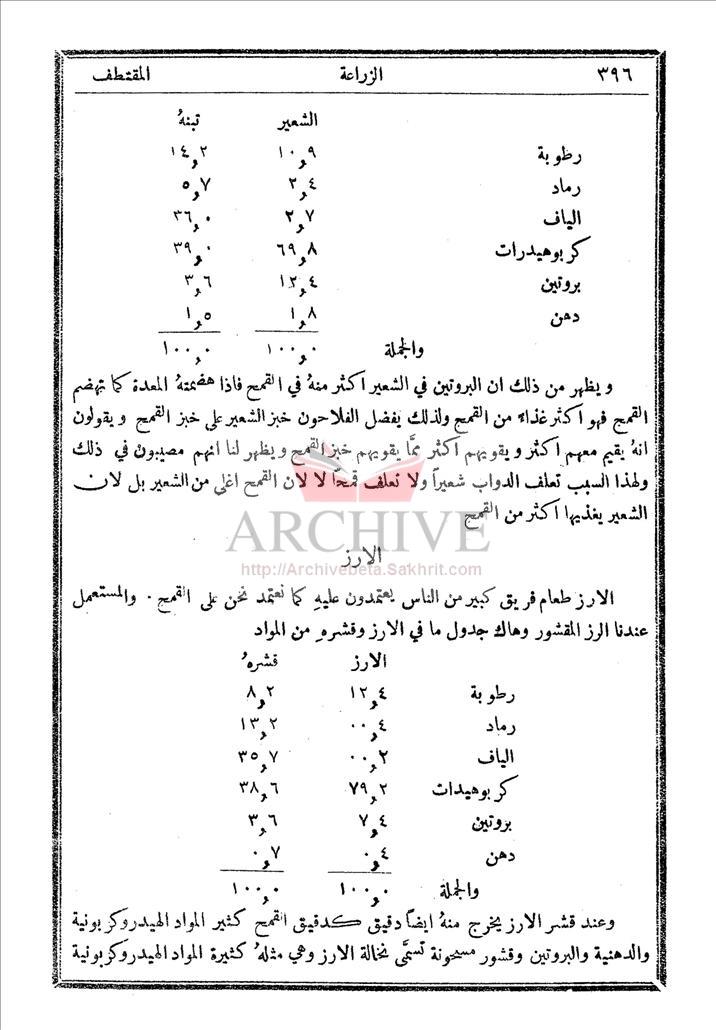 ٣٩٦ الزراعة المقتطف
الشعير تبنهُ
رطوبة ١٠,٩ ١٤,٢
رماد ٢,٤ ٥,٧
الياف ٢,٧ ٣٦,٠
كربوهيدرات ٦٩,٨ ٣٩,٠
بروتين ١٢,٤ ٣,٦
دهن ١,٨ ١,٥
والجملة ١٠٠,٠ ١٠٠,٠
ويظهر من ذلك ان البروتين في الشعير اكثر منهُ في القمح فاذا هضمتهُ المعدة كما تهضم
القمح فهو اكثر غذاءً من القمح ولذلك يفضل الفلاحون خبز الشعير على خبز القمح ويقولون
انهُ يقيم معهم اكثر ويقويهم اكثر ممَّا يقويهم خبز القمح ويظهر لنا انهم مصيبون في ذلك
ولهذا السبب تعلف الدواب شعيراً ولا تعلف قمحاً لا لان القمح اغلى من الشعير بل لان
الشعير يغذيها اكثر من القمح
ARCHIVE
الارز
http://Archivebeta.Sakhrit.com
الارز طعام فريق كبير من الناس يعتمدون عليهِ كما نعتمد نحن على القمح . والمستعمل
عندنا الرز المقشور وهاك جدول ما في الارز وقشرهِ من المواد
الارز قشرهُ
رطوبة ١٢,٤ ٨,٢
رماد ٠٠,٤ ١٣,٢
الياف ٠٠,٢ ٣٥,٧
كربوهيدات ٧٩,٢ ٣٨,٦
بروتين ٧,٤ ٣,٦
دهن ٠,٤ ٠,٧
والجملة ١٠٠,٠ ١٠٠,٠
وعند قشر الارز يخرج منهُ ايضاً دقيق كدقيق القمح كثير المواد الهيدروكربونية
والدهنية والبروتين وقشور مسحونة تسمَّى نخالة الارز وهي مثلهُ كثيرة المواد الهيدروكربونية